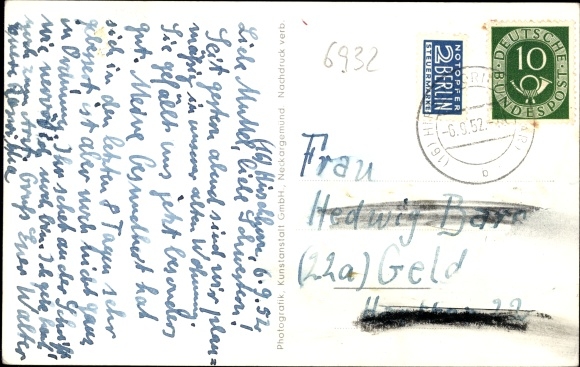 (16) Hirschhorn, 6.9.52
Liebe Mutter, liebe Schwestern!
Seit gestern abend sind wir plan=
mäßig in unserer alten Wohnung.
Sie gefällt uns jetzt besonders
gut. Meine Gesundheit hat
sich in den letzten 8 Tagen sehr
gebessert, ist aber noch nicht ganz
in Ordnung. Ihr seht an der Schrift
wie nervös ich noch bin.
Gruß Euer Walter
Photografik, Kunstanstalt GmbH, Neckargemünd Nachdruck verb.
6932
NOTOPFER
2 BERLIN
STEUERMARKE
DEUTSCHE
10
BUNDESPOST
(16) HIRSCHHORN
-6.9.52.
b
Frau
Hedwig
(22a) Geld